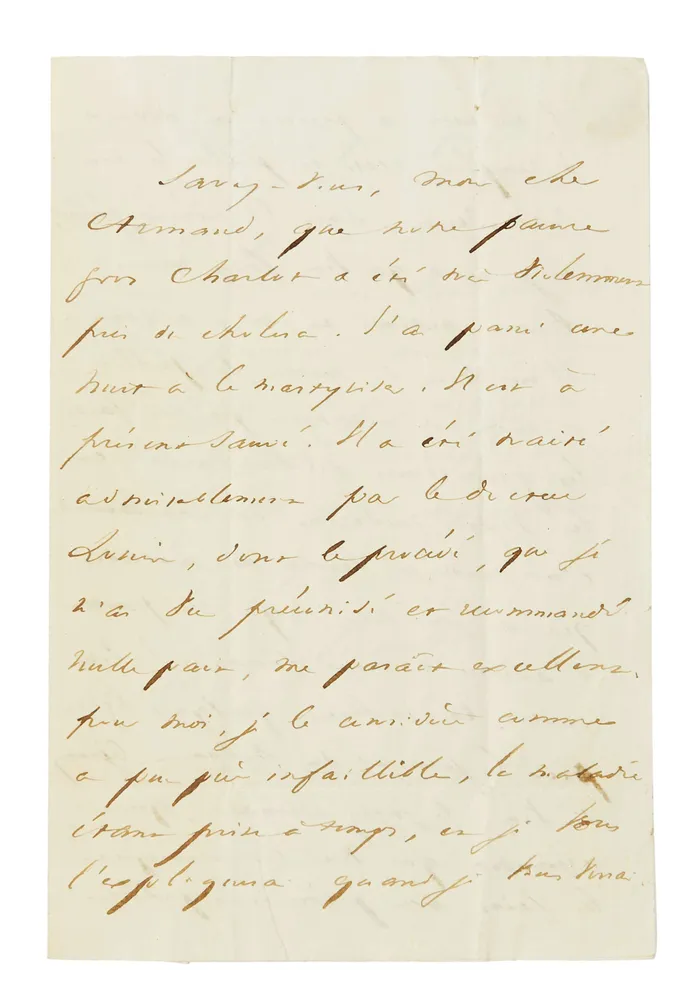 Savez-vous, mon cher
Armand, que notre pauvre
gros Charlot a été très violemment
pris du choléra. J'ai passé une
nuit à le martyriser. Il est à
présent sauvé. Il a été traité
admirablement par le docteur
dont le procédé, que je
n'ai vu préconisé et recommandé
nulle part, me paraît excellent.
pour moi, je le considère comme
à peu près infaillible, la maladie
étant prise à temps, et je vous
l'expliquerai quand je vous verrai.